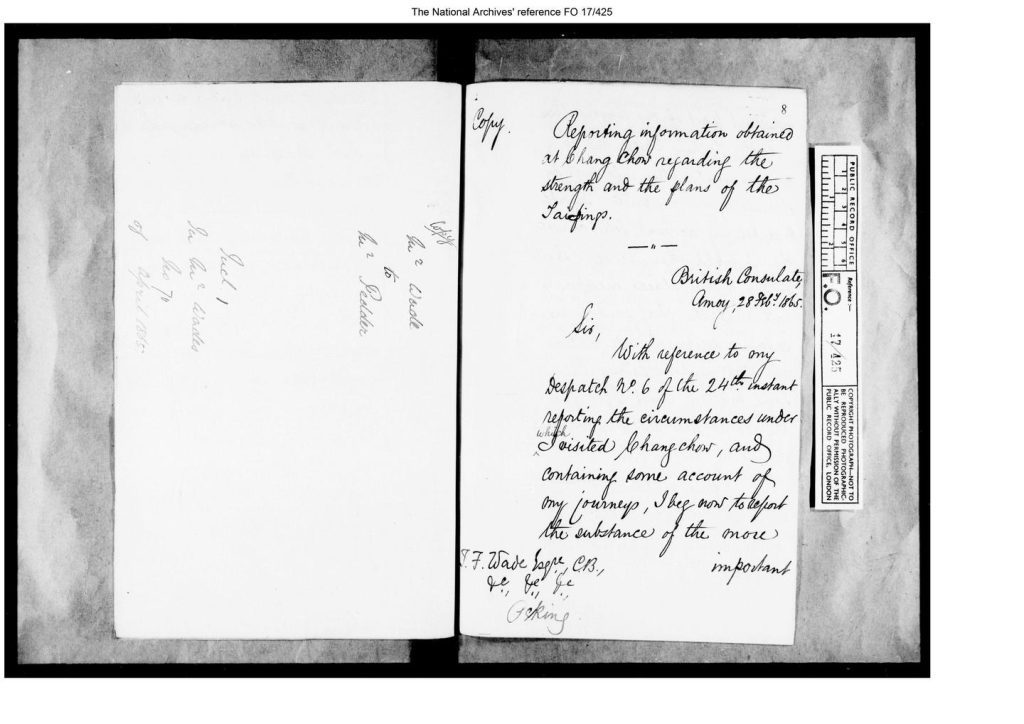 The National Archives' reference FO 17/425
Mr Wade
to
Mr Pedder
Incl 1
In Mr Wades
No 70
of April 1865
8
Copy.
Reporting information obtained
at Chang Chow regarding the
strength and the plans of the
Taipings.
British Consulate,
Amoy, 28 Feby. 1865.
Sir,
With reference to my
Despatch No. 6 of the 24th instant
reporting the circumstances under
which
I visited Changchow, and
containing some account of
my journeys, I beg now to report
the substance of the more
important
T. F. Wade Esqre, C.B.,
&c., &c., &c
Peking
PUBLIC RECORD OFFICE
1 2 3 4 5 6
Reference:-
F.O.
17/425
COPYRIGHT PHOTOGRAPH—NOT TO
BE REPRODUCED PHOTOGRAPHIC-
ALLY WITHOUT PERMISSION OF THE
PUBLIC RECORD OFFICE, LONDON